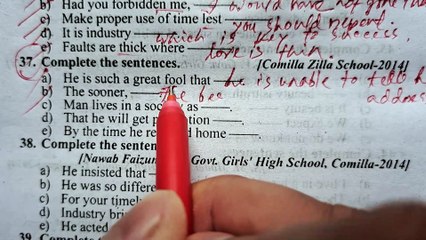 b) Had you forbidden me, I would have not give that
c) Make proper use of time lest you should repent.
d) It is industry which is key to success.
e) Faults are thick where love is thin.
37. Complete the sentences. [Comilla Zilla School-2014]
a) He is such a great fool that he is unable to tell h
b) The sooner, the bee address
c) Man lives in a so as
d) That he will get p tion
e) By the time he re d home
38. Complete the senten
[Nawab Faizun Govt. Girls' High School, Comilla-2014]
a) He insisted that
b) He was so differe
c) For your timel
d) Industry bri
e) He acted
39. Complete